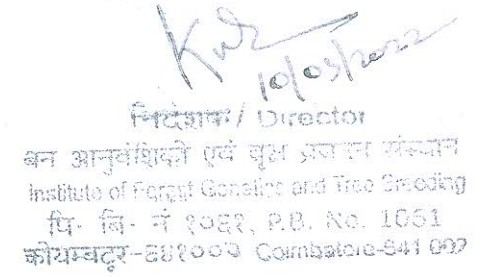 10/03/2022
निदेशक / Director
वन आनुवंशिकी एवं वृक्ष प्रजनन संस्थान
Institute of Forest Genetics and Tree Breeding
पि. बि. नं १०६१, P.B. No. 1061
कोयम्बटूर-६४१००२ Coimbatore-641 002